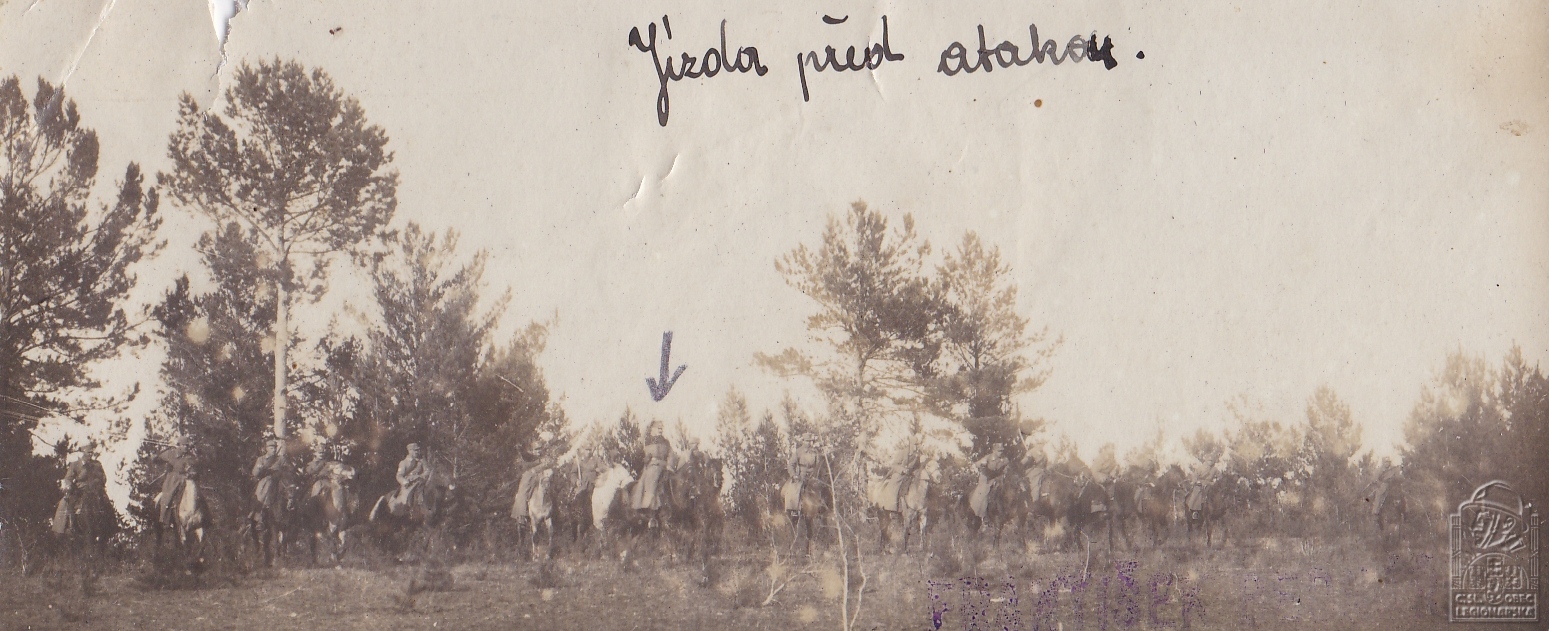 Jízda před atakou.
FRANTIŠEK
ČSL. OBEC
LEGIONÁŘSKÁ